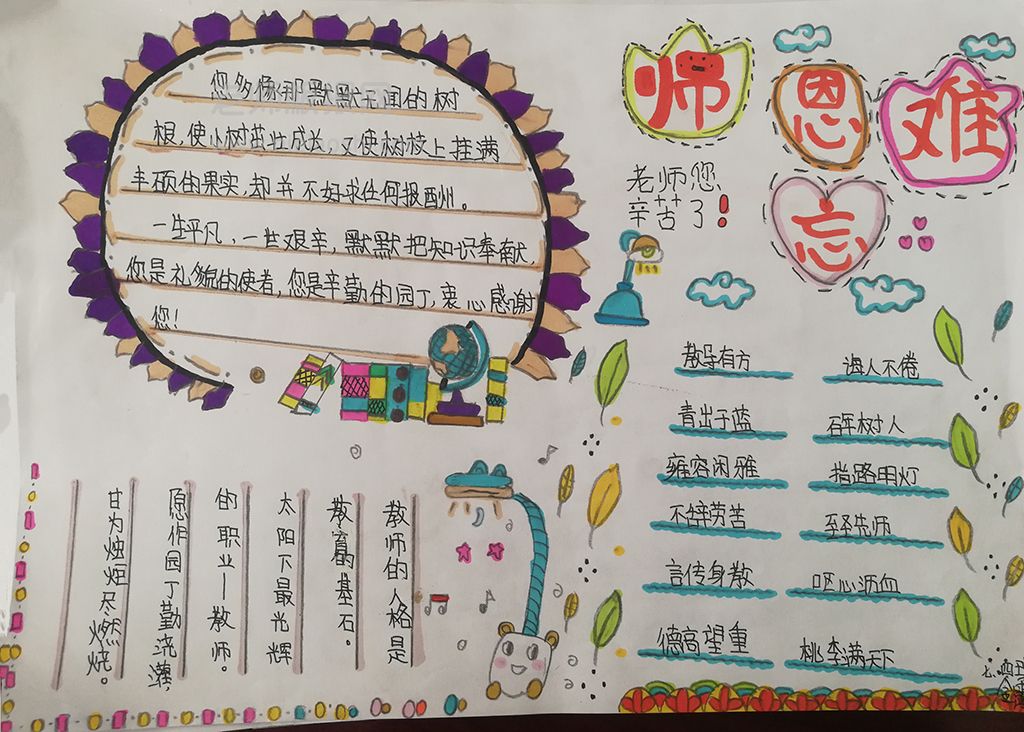 师恩难
忘
老师您
辛苦了!
您多像那默默无闻的树
根,使小树茁壮成长,又使树枝上挂满
丰硕的果实,却并不好求任何报酬。
一生平凡,一些艰辛,默默把知识奉献,
你是礼貌的使者,您是辛勤的园丁,衷心感谢
您!
教师的人格是
教育的基石。
太阳下最光辉
的职业—教师。
愿作园丁勤浇灌,
甘为烛炬尽燃烧。
教导有方 诲人不倦
青出于蓝 百年树人
雍容闲雅 指路明灯
不辞劳苦 至圣先师
言传身教 呕心沥血
德高望重 桃李满天下